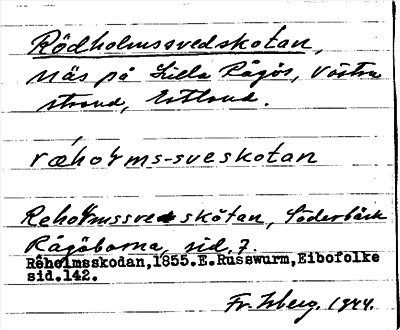 Rödholmssvedskotan,
näs på Lilla Rågös, västra
strand, Estland.
ræhoľms-sveskotan
Rehoľmssveskötan, Söderbäck
Rågöborna, sid. 7.
Rêholmsskodan,1855.E.Russwurm,Eibofolke
sid.142.
Fr. Isberg. 1944.